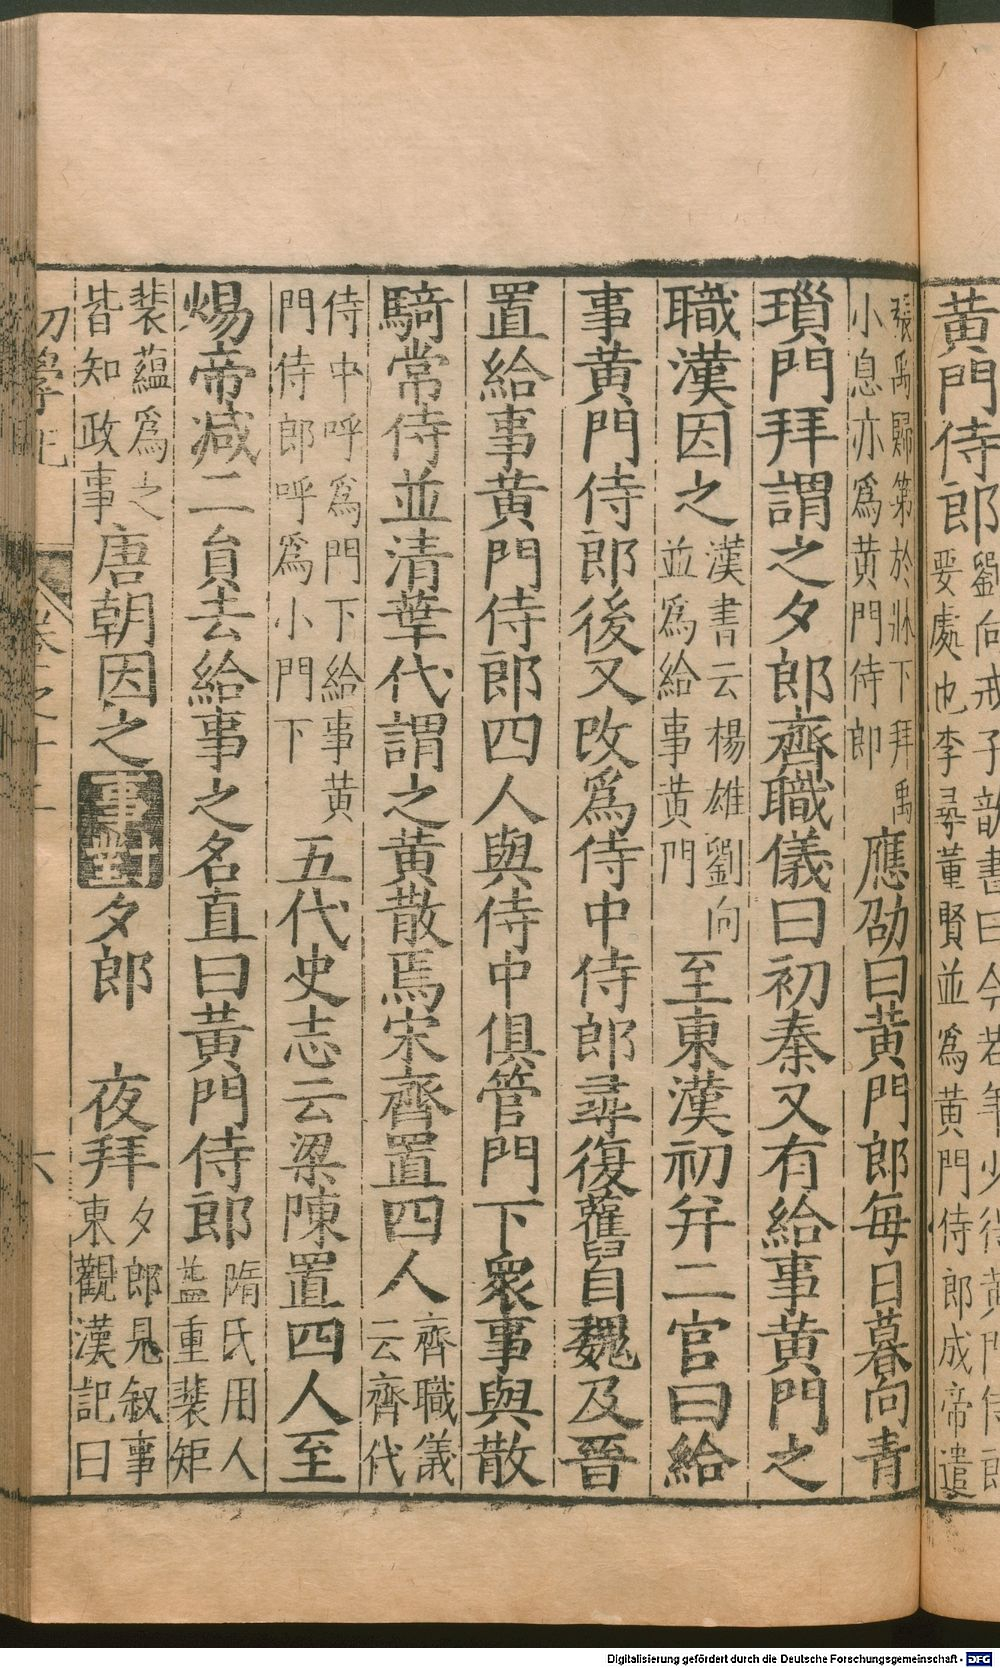 黃門侍郎劉向戒子歆書曰今若年少得黃門侍郎
要處也李尋董賢並爲黃門侍郎成帝遣
張禹歸第於牀下拜禹
小息亦爲黃門侍郎
應劭曰黃門郎每日暮向青
瑣門拜謂之夕郎齊職儀曰初秦又有給事黃門之
職漢因之漢書云楊雄劉向
並爲給事黃門
至東漢初并二官曰給
事黃門侍郎後又改爲侍中侍郎尋復舊自魏及晉
置給事黃門侍郎四人與侍中俱管門下衆事與散
騎常侍並清華代謂之黃散焉宋齊置四人齊職儀
云齊代
侍中呼爲門下給事黃
門侍郎呼爲小門下
五代史志云梁陳置四人至
煬帝減二員去給事之名直曰黃門侍郎隋氏用人
益重裴矩
裴蘊爲之
皆知政事
唐朝因之事對夕郎 夜拜夕郎見叙事
東觀漢記曰
初學記 卷之十二 六
Digitalisierung gefördert durch die Deutsche Forschungsgemeinschaft - DFG